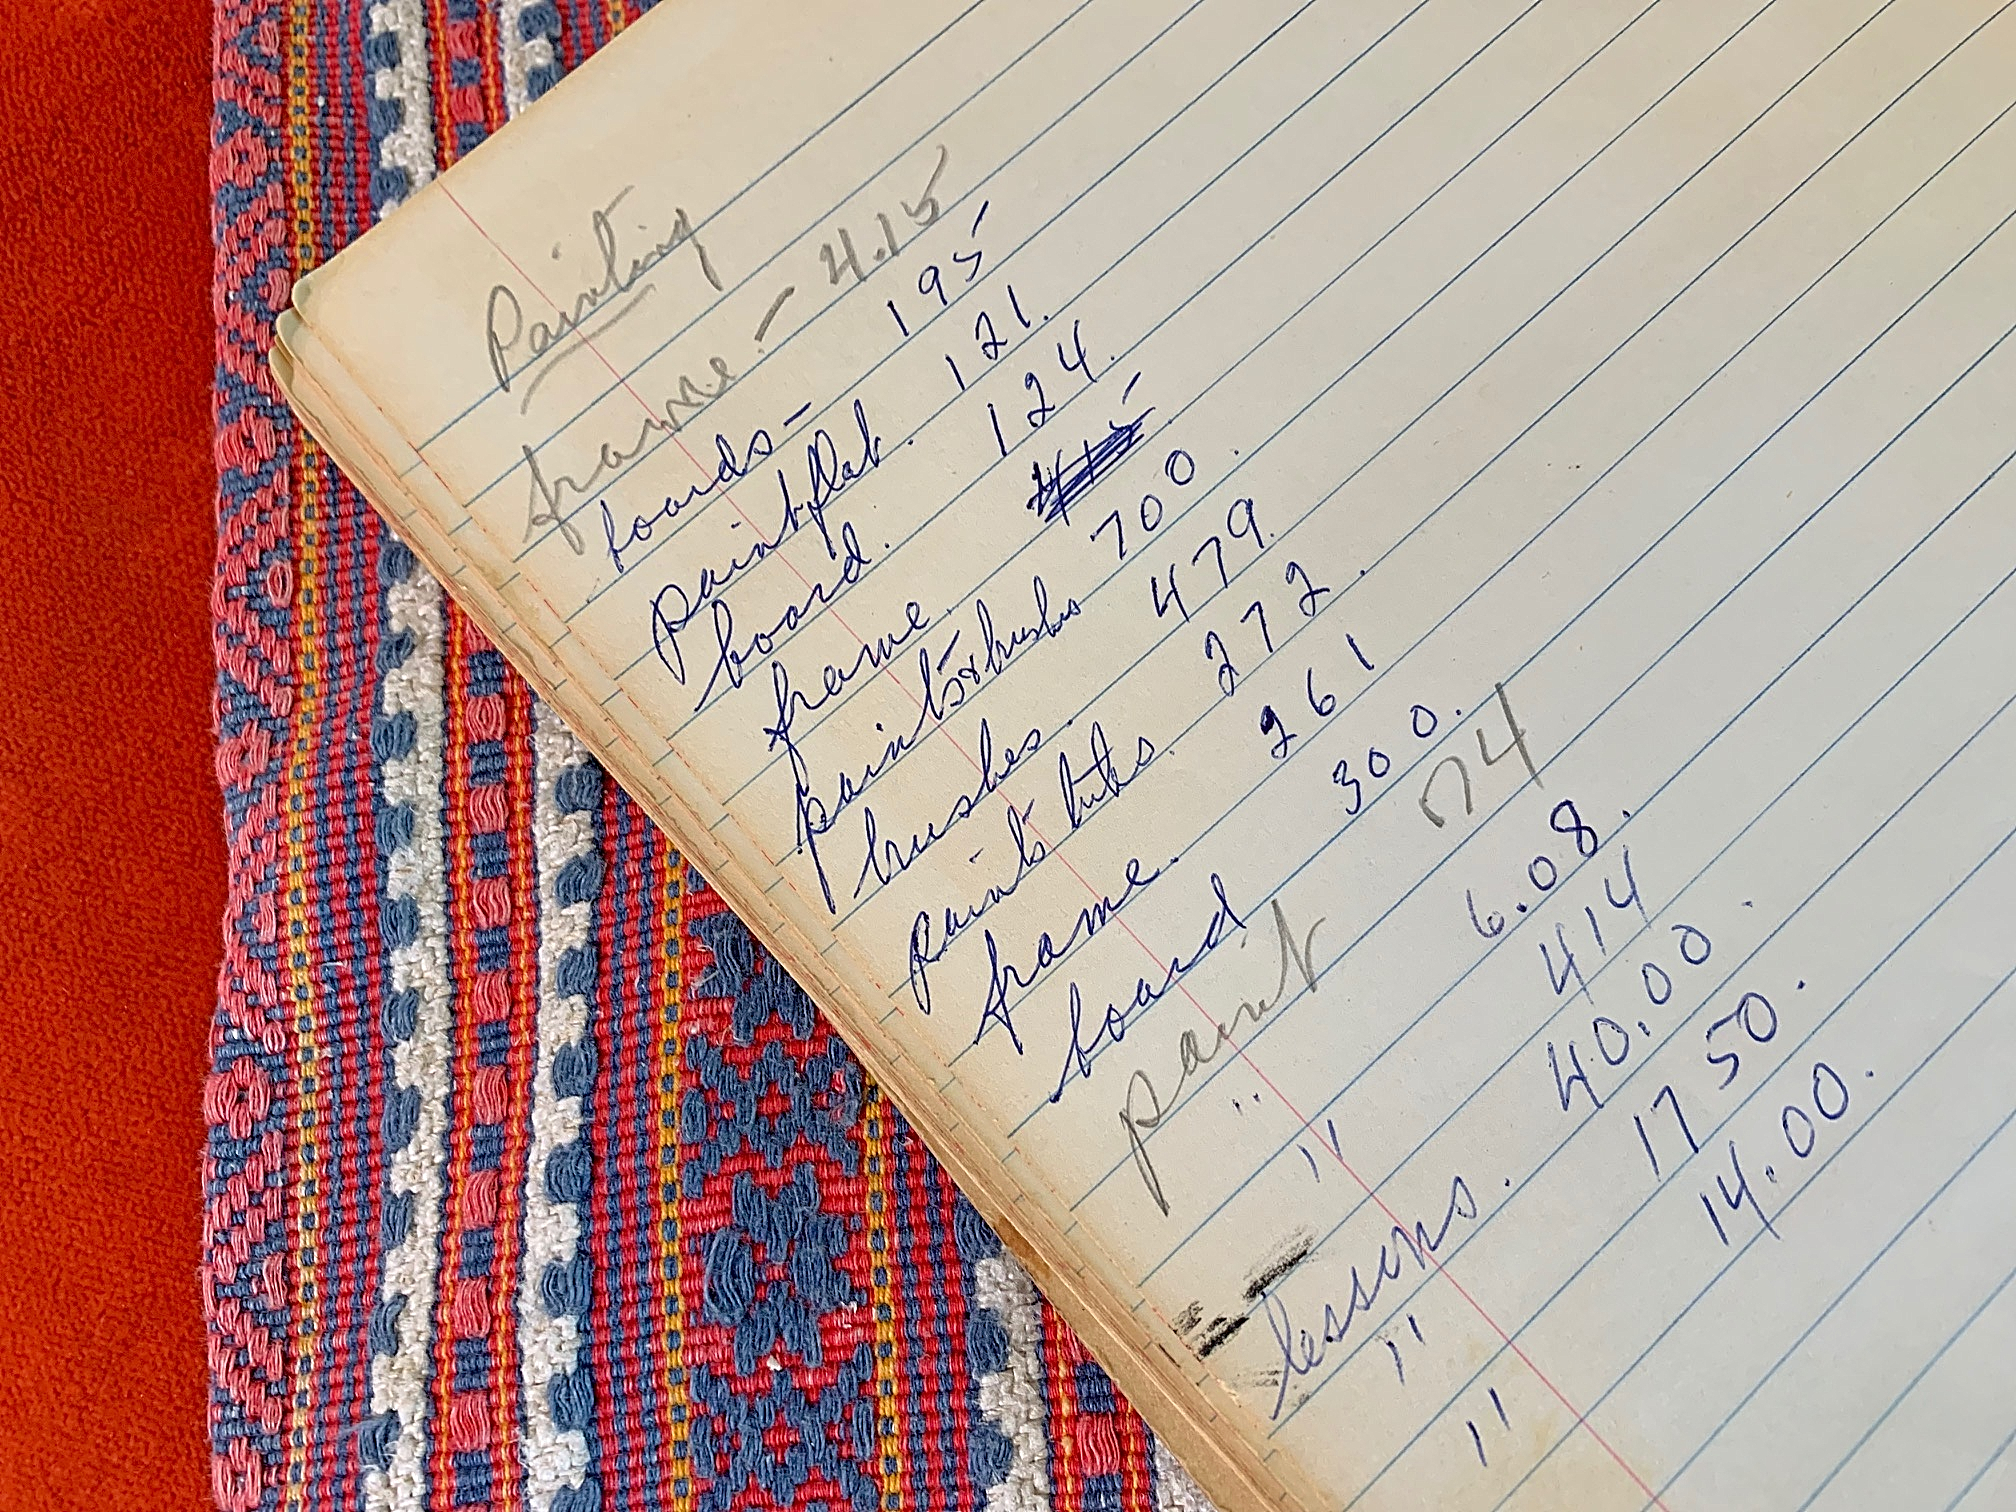 Painting
frame. - 4.15
boards - 195
paint flat. 121.
board. 124.
frame.
paints & brushes 700.
brushes. 479.
paint tubes. 272.
frame. 261
board 300.
paint 74
" 6.08.
" 414
lessons. 40.00.
" 17 50.
" 14.00.